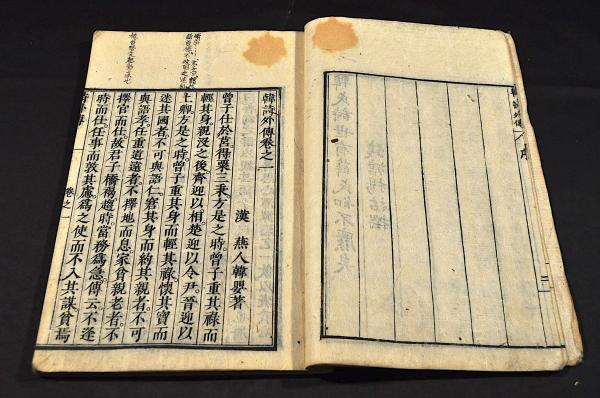 韓詩外傳 序
二
韓詩外傳卷之一
漢 燕人韓嬰著
曾子仕於莒得粟三秉方是之時曾子重其祿而
輕其身親沒之後齊迎以相楚迎以令尹晉迎以
上卿方是之時曾子重其身而輕其祿懷其寶而
迷其國者不可與語仁窘其身而約其親者不可
與語孝任重道遠者不擇地而息家貧親老者不
擇官而仕故君子橋褐趨時當務爲急傳云不逢
時而仕任事而敦其慮爲之使而不入其謀貧焉
卷之一